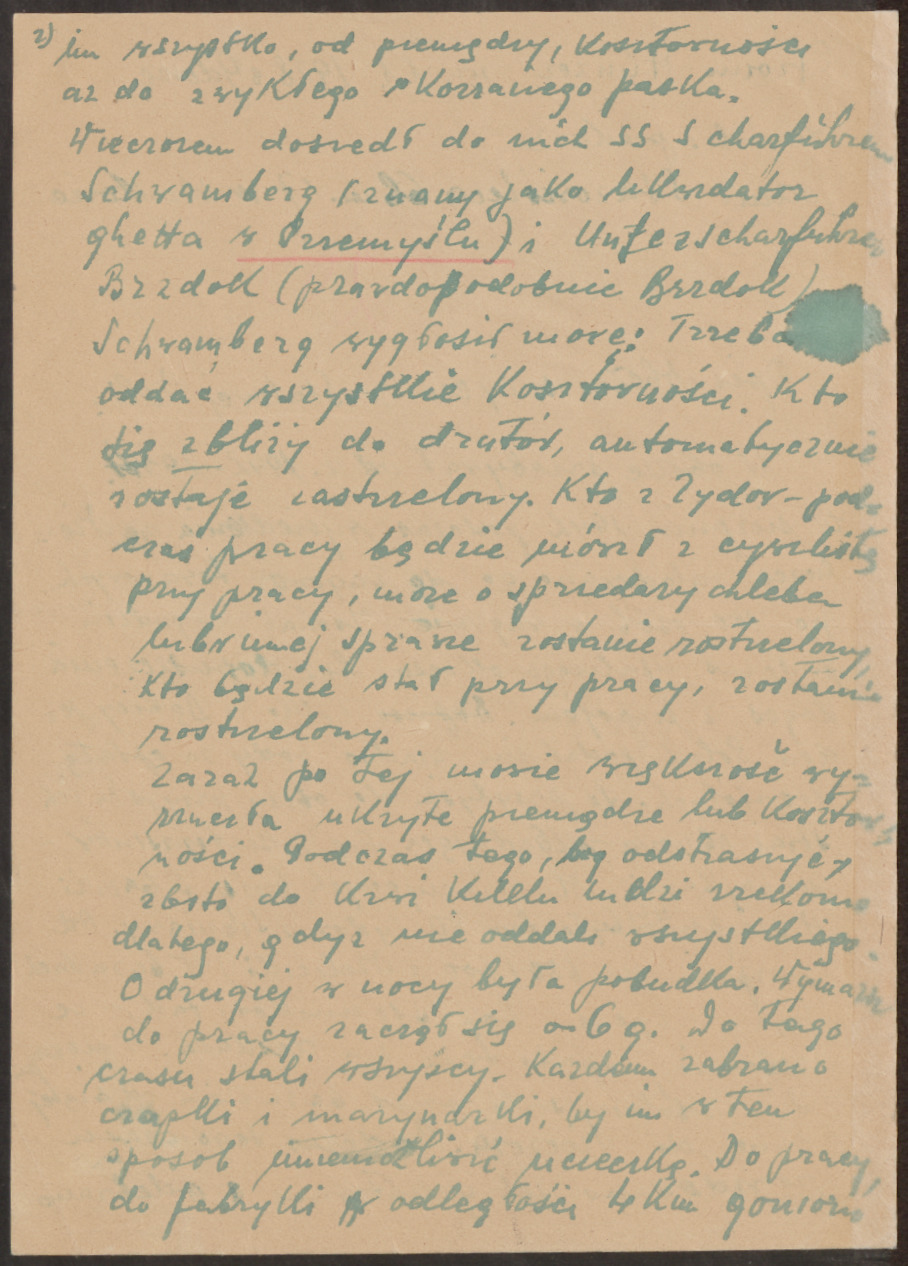 2) im wszystko, od pieniędzy, kosztowności
aż do zwykłego skorzanego paska.
Wieczorem doszedł do nich SS Scharführer
Schwamberg (znany jako likwidator
ghetta w Przemyślu) i Unterscharführer
Brzdok (prawdopodobnie Brzdok)
Schwamberg wygłosił mowę: Trzeba
oddać wszystkie kosztowności. Kto
się zbliży do drutów, automatycznie
zostaje zastrzelony. Kto z Żydow - pod-
czas pracy będzie mówił z cywilistą
przy pracy, może o sprzedaży chleba
lub innej sprawie zostanie rozstrzelony,
Kto będzie stał przy pracy, zostanie
rostrzelony.
Zaraz po tej mowie większość wy-
rzuciła ukryte pieniądze lub koszto-
ności. Podczas tego, by odstraszyć,
zbito do krwi kilku ludzi rzekomo
dlatego, gdyż nie oddali wszystkiego.
O drugiej w nocy była pobudka. Wymarsz
do pracy zaczął się o 6 g. Do tego
czasu stali wszyscy. Każdem zabrano
czapki i marynarki, by im w ten
sposób uniemożliwić ucieczkę. Do pracy,
do fabryki w odległości km goniono